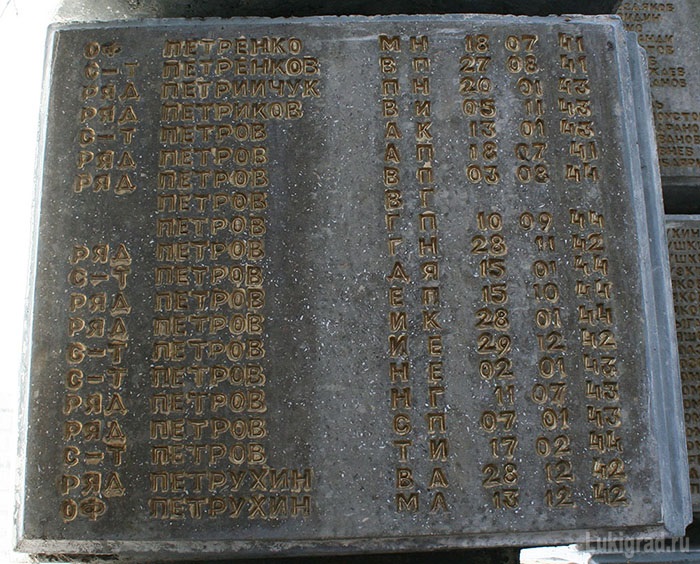 ОФ ПЕТРЕНКО М Н 18 07 41
С-Т ПЕТРЕНКОВ В П 27 08 41
РЯД ПЕТРИЙЧУК П Н 20 01 43
РЯД ПЕТРИКОВ В И 05 11 43
С-Т ПЕТРОВ А К 13 01 43
РЯД ПЕТРОВ А П 18 07 41
РЯД ПЕТРОВ В П 03 08 41
ПЕТРОВ В Г
ПЕТРОВ Г П 10 09 44
РЯД ПЕТРОВ Г Н 28 11 42
С-Т ПЕТРОВ Д Я 15 01 44
РЯД ПЕТРОВ Е П 15 10 44
РЯД ПЕТРОВ И К 28 01 44
С-Т ПЕТРОВ И Е 29 12 42
С-Т ПЕТРОВ Н Е 02 01 43
РЯД ПЕТРОВ Н Г 11 07 43
РЯД ПЕТРОВ С П 07 01 43
С-Т ПЕТРОВ Т И 17 02 44
РЯД ПЕТРУХИН В А 28 12 42
ОФ ПЕТРУХИН М А 13 12 42
Lukigrad.ru